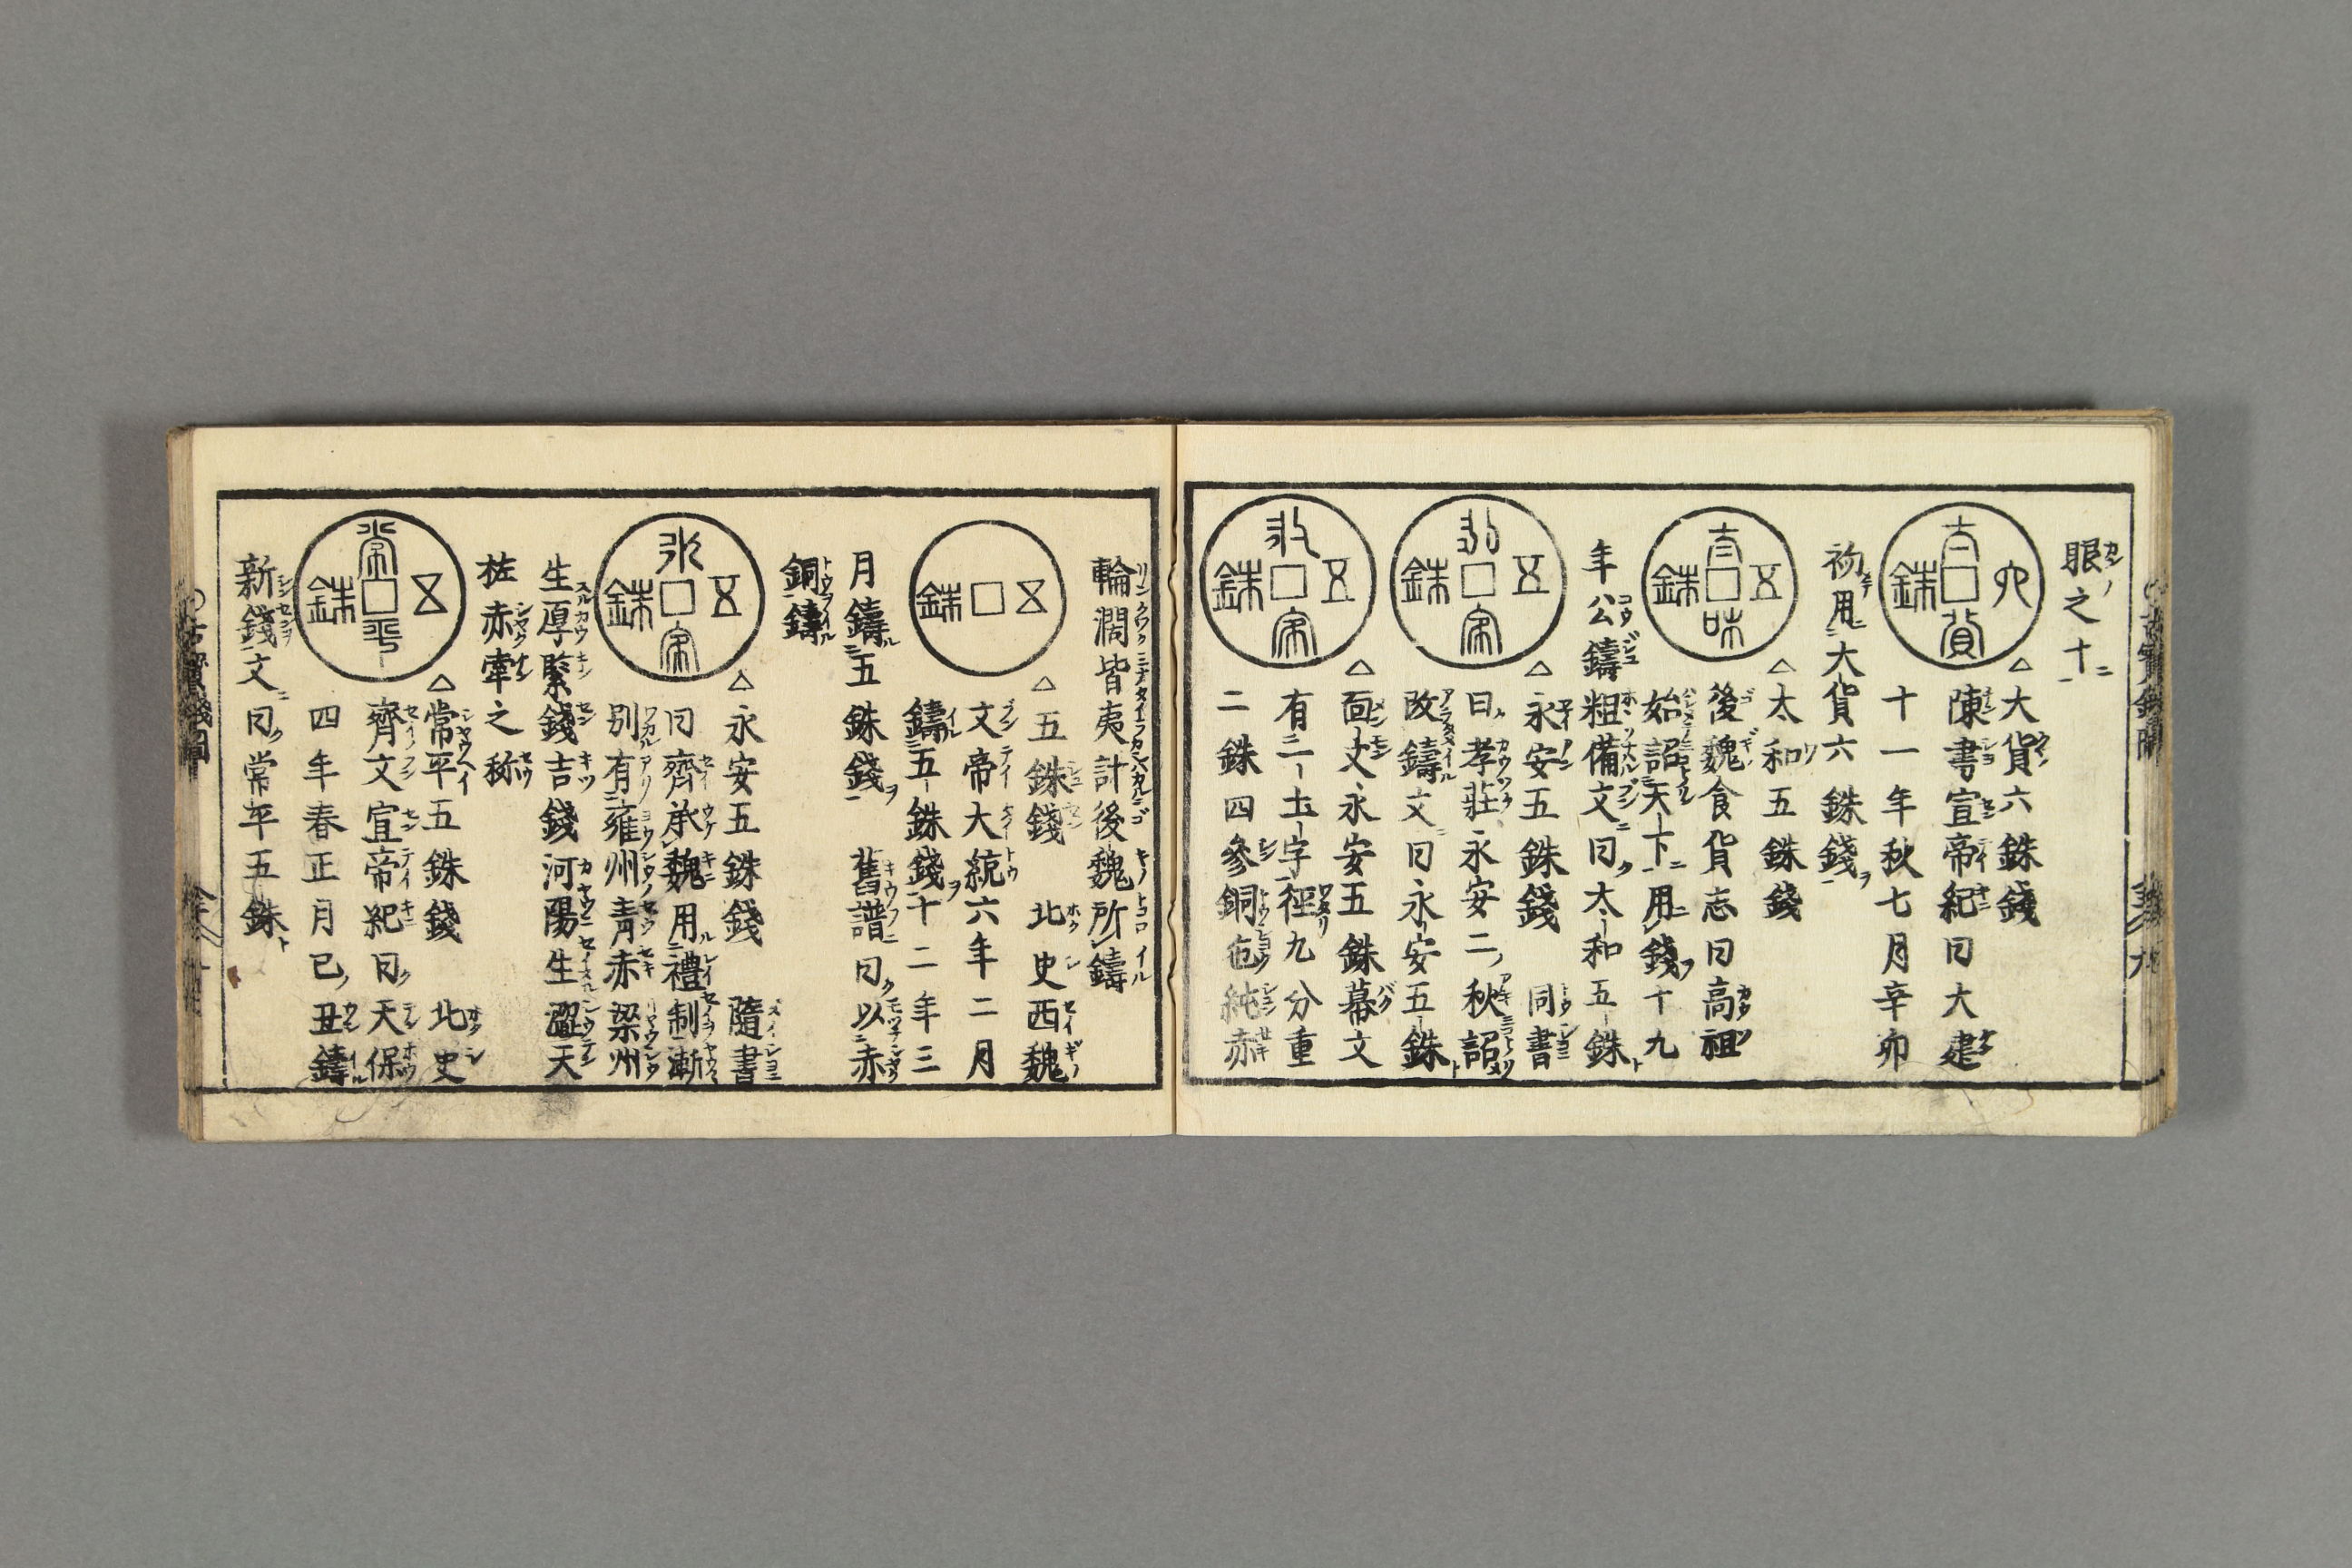 眼之十
大貨六銖錢
陳書宣帝紀曰大建
十一年秋七月辛卯
初用大貨六銖錢
太和五銖錢
後魏食貨志曰高祖
始詔天下用錢十九
年公鑄粗備文曰太和五銖
永安五銖錢 同書
曰孝莊永安二秋詔
改鑄文曰永安五銖
面文永安五銖幕文
有二土字徑九分重
二銖四參銅色純赤
輪濶皆夷計後魏所鑄
五銖錢 北史西魏
文帝大統六年二月
鑄五銖錢十二年三
月鑄五銖錢 舊譜曰以赤
銅鑄
永安五銖錢 隨書
曰齊承魏用禮制漸
別有雍州青赤梁州
生厚緊錢吉錢河陽生澀天
柱赤牽之称
常平五銖錢 北史
齊文宣帝紀曰天保
四年春正月己丑鑄
新錢文曰常平五銖